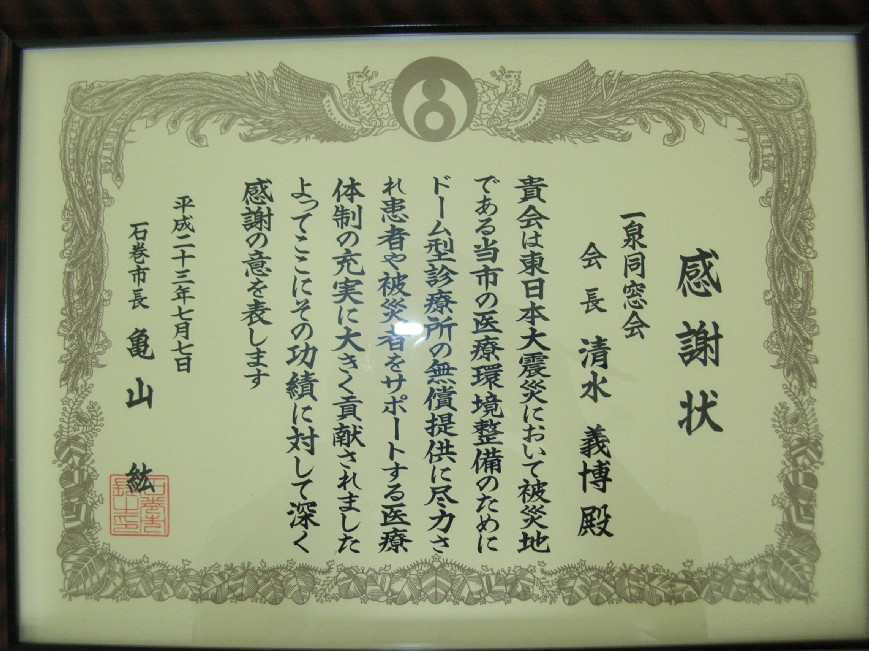 感謝状
一泉同窓会
会長 清水 義博 殿
貴会は東日本大震災において被災地
である当市の医療環境整備のために
ドーム型診療所の無償提供に尽力さ
れ患者や被災者をサポートする医療
体制の充実に大きく貢献されました
よってここにその功績に対して深く
感謝の意を表します
平成二十三年七月七日
石巻市長 亀山 紘